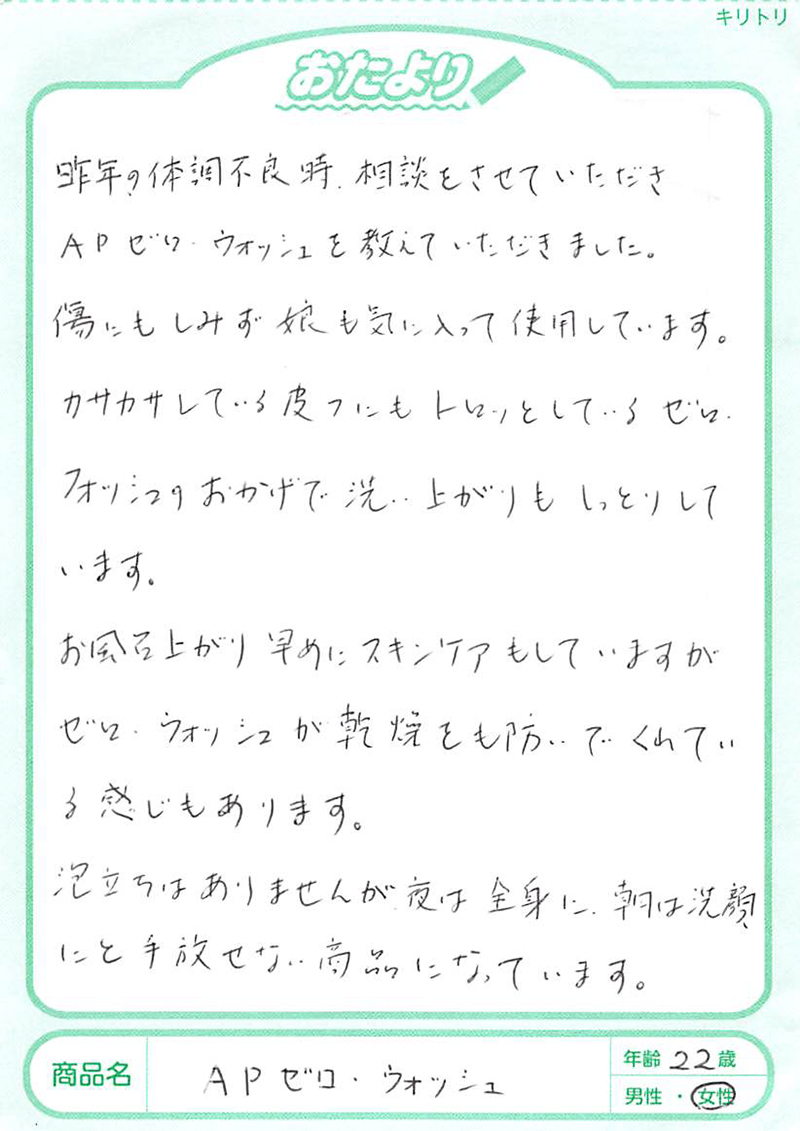 キリトリ
おたより
昨年の体調不良時、相談をさせていただき
APゼロ・ウォッシュを教えていただきました。
傷にもしみず娘も気に入って使用しています。
カサカサしている皮フにもトロッとしているゼロ・
ウォッシュのおかげで洗い上がりもしっとりして
います。
お風呂上がり早めにスキンケアもしていますが
ゼロ・ウォッシュが乾燥をも防いでくれてい
る感じもあります。
泡立ちはありませんが、夜は全身に、朝は洗顔
にと手放せない商品になっています。
商品名 APゼロ・ウォッシュ
年齢 22歳
男性・女性